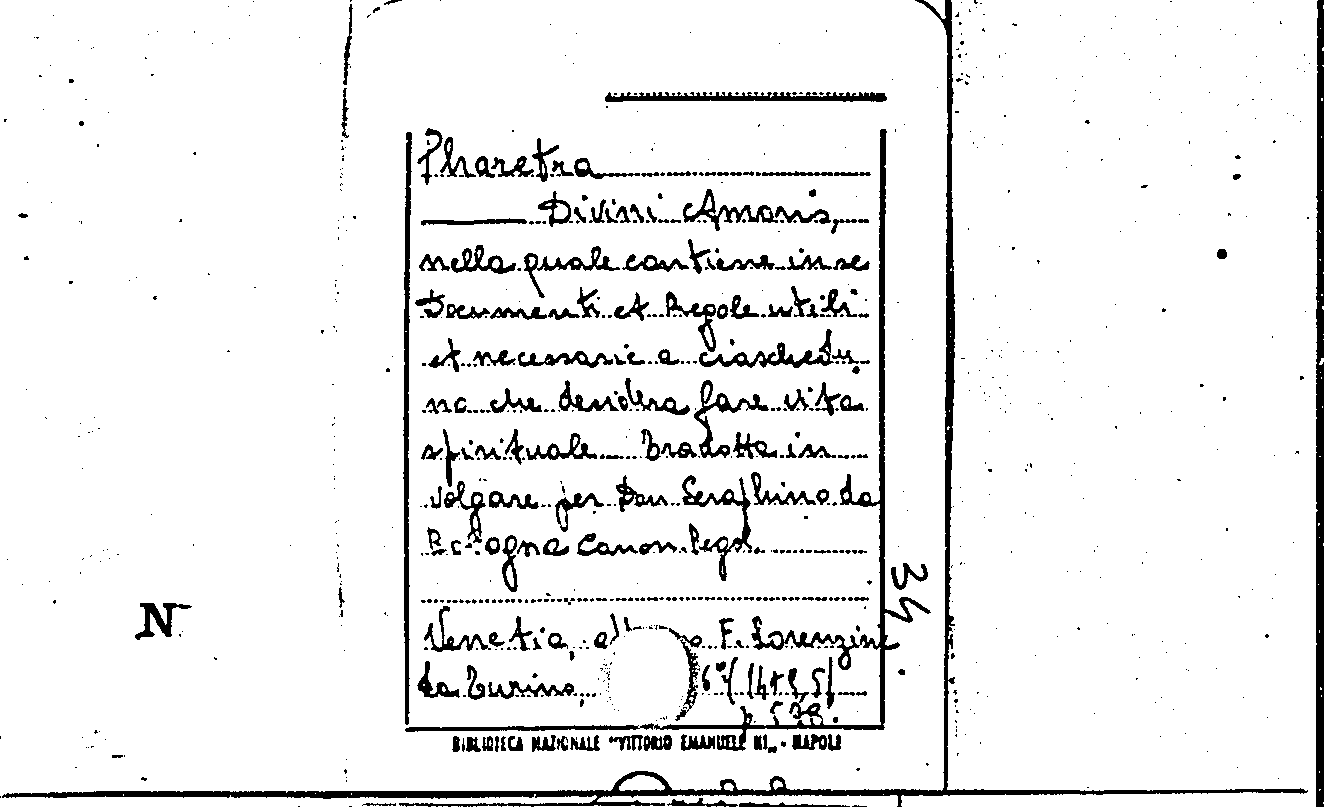 Pharetra
Divini Amoris,
nella quale contiene in se
Documenti et Regole utili
et necessarie a ciaschedu
no che desidera fare vita
spirituale Tradotta in
volgare per Don Seraphino da
Bologna Canon. Regol.
34.
Venetia, F. Lorenzini
da Turino, 6°
p. 538.
BIBLIOTECA NAZIONALE "VITTORIO EMANUELE III„ - NAPOLI
N